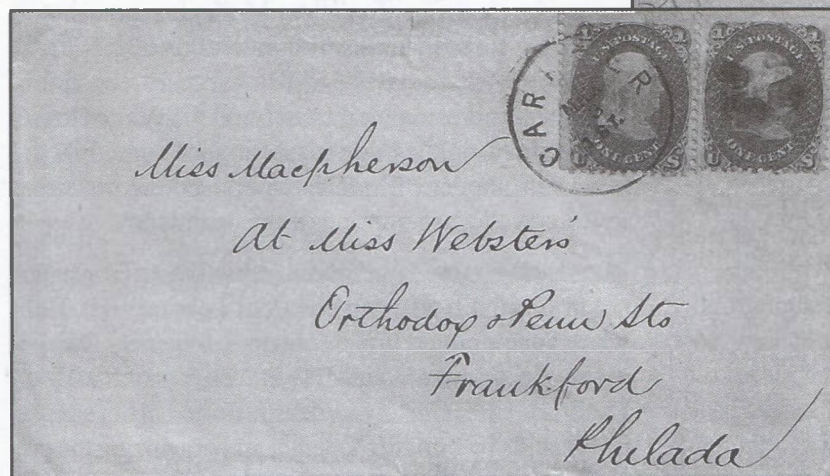 U.S. POSTAGE
ONE CENT
U S
U.S. POSTAGE
ONE CENT
U S
CARRIER
Miss Macpherson
At Miss Webster's
Orthodox & Penn Sts
Frankford
Philada